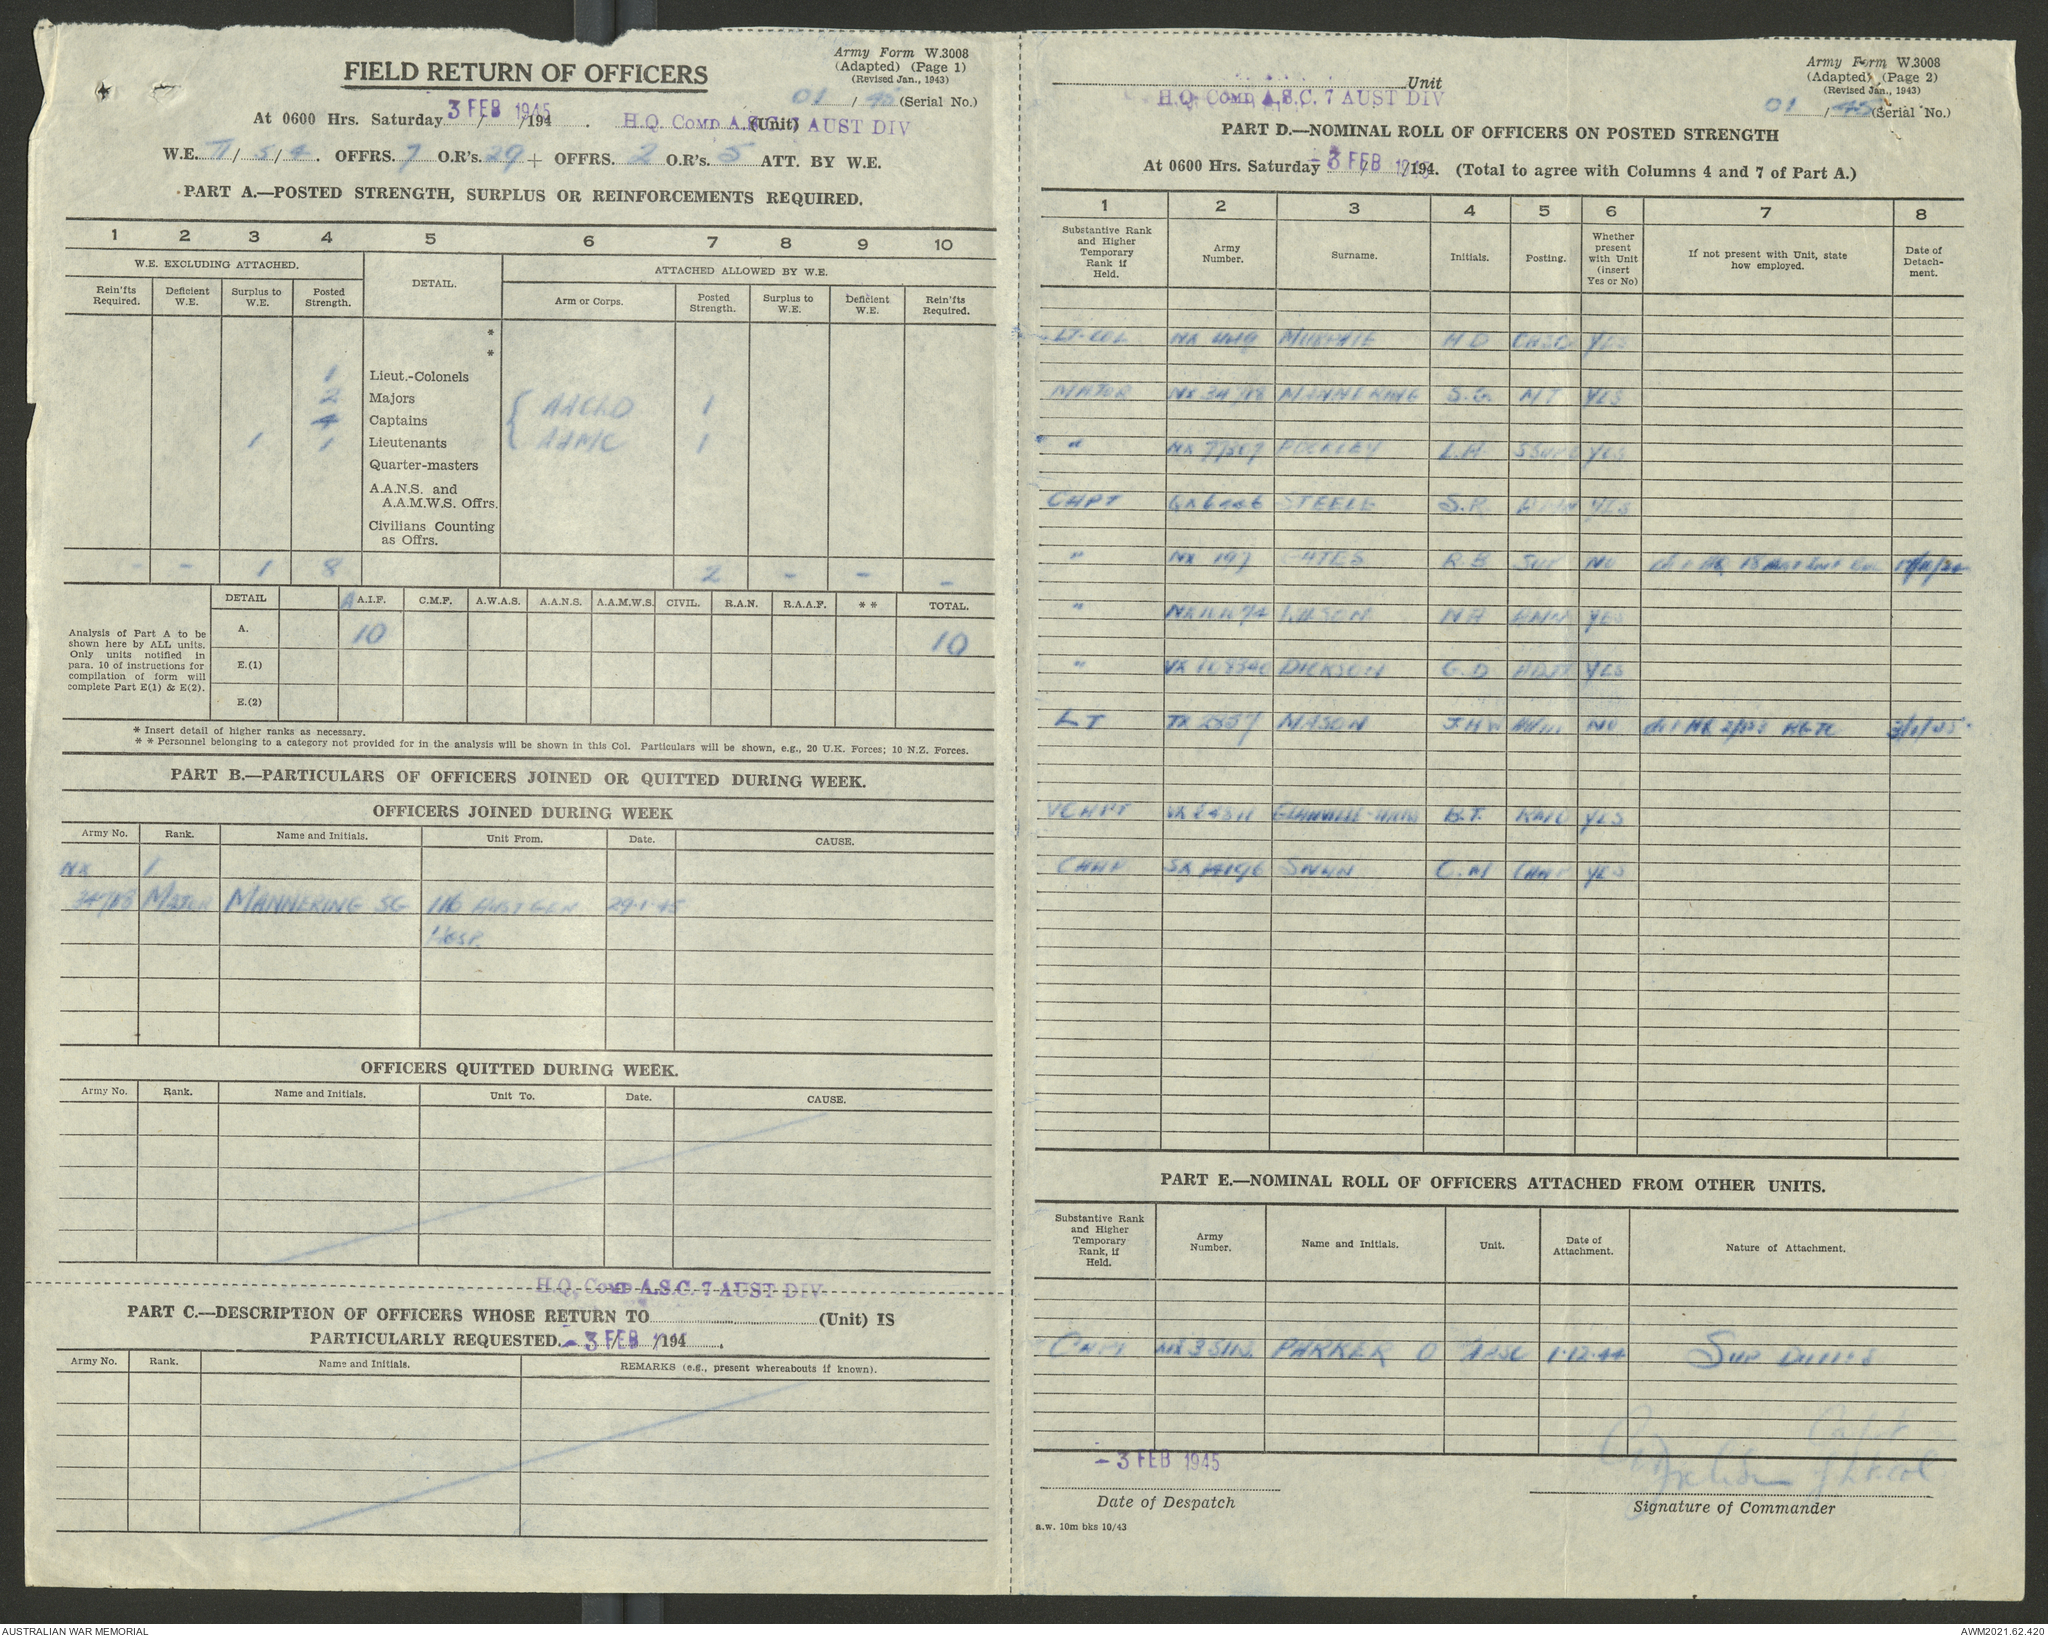 Army Form W.3008
(Adapted) (Page 1)
(Revised Jan., 1943)
FIELD RETURN OF OFFICERS
01 / 45 (Serial No.)
At 0600 Hrs. Saturday 3 FEB 1945 /194 . H.Q. COMD A.S.C. 7 AUST DIV (Unit)
W.E. II / 5 / 4. OFFRS. 7 O.R's. 29 + OFFRS. 2 O.R's. 5 ATT. BY W.E.
PART A.—POSTED STRENGTH, SURPLUS OR REINFORCEMENTS REQUIRED.
1 2 3 4 5 6 7 8 9 10
W.E. EXCLUDING ATTACHED. DETAIL. ATTACHED ALLOWED BY W.E.
Rein'fts Required. Deficient W.E. Surplus to W.E. Posted Strength. Arm or Corps. Posted Strength. Surplus to W.E. Deficient W.E. Rein'fts Required.
*
*
1 Lieut.-Colonels
2 Majors AACHD 1
4 Captains
1 1 Lieutenants AAMC 1
Quarter-masters
A.A.N.S. and
A.A.M.W.S. Offrs.
Civilians Counting
as Offrs.
- - 1 8 2 - - -
DETAIL A.I.F. C.M.F. A.W.A.S. A.A.N.S. A.A.M.W.S. CIVIL. R.A.N. R.A.A.F. * * TOTAL.
A. 10 10
E.(1)
E.(2)
Analysis of Part A to be
shown here by ALL units.
Only units notified in
para. 10 of instructions for
compilation of form will
complete Part E(1) & E(2).
* Insert detail of higher ranks as necessary.
* * Personnel belonging to a category not provided for in the analysis will be shown in this Col. Particulars will be shown, e.g., 20 U.K. Forces; 10 N.Z. Forces.
PART B.—PARTICULARS OF OFFICERS JOINED OR QUITTED DURING WEEK.
OFFICERS JOINED DURING WEEK
Army No. Rank. Name and Initials. Unit From. Date. CAUSE.
NX
34718 MAJOR MANNERING SG 116 AUST GEN 29-1-45
HOSP.
OFFICERS QUITTED DURING WEEK.
Army No. Rank. Name and Initials. Unit To. Date. CAUSE.
H.Q. COMD A.S.C. 7 AUST DIV
PART C.—DESCRIPTION OF OFFICERS WHOSE RETURN TO (Unit) IS
PARTICULARLY REQUESTED. - 3 FEB /194 .
Army No. Rank. Name and Initials. REMARKS (e.g., present whereabouts if known).
Army Form W.3008
(Adapted) (Page 2)
(Revised Jan., 1943)
Unit
H.Q. COMD A.S.C. 7 AUST DIV
01 / 45 (Serial No.)
PART D.—NOMINAL ROLL OF OFFICERS ON POSTED STRENGTH
At 0600 Hrs. Saturday - 3 FEB 1945 /194. (Total to agree with Columns 4 and 7 of Part A.)
1 2 3 4 5 6 7 8
Substantive Rank and Higher Temporary Rank if Held. Army Number. Surname. Initials. Posting. Whether present with Unit (insert Yes or No) If not present with Unit, state how employed. Date of Detachment.
LT-COL NX H D CASC YES
MAJOR NX 34718 MANNERING S.G. MT YES
" L.H YES
CAPT STEELE S.R. YES
" NX 197 R B SUP NO
" N H YES
" VX 108340 DICKSON G.D ADJT YES
LT TX MASON J.H.W NO
V CAPT B.T. YES
CHAP SWAN C.M CHAP YES
PART E.—NOMINAL ROLL OF OFFICERS ATTACHED FROM OTHER UNITS.
Substantive Rank and Higher Temporary Rank, if Held. Army Number. Name and Initials. Unit. Date of Attachment. Nature of Attachment.
CAPT PARKER O AASC 1-12-44 SUP DUTIES
Capt
f Lt. Col
- 3 FEB 1945
Date of Despatch Signature of Commander
a.w. 10m bks 10/43
AUSTRALIAN WAR MEMORIAL AWM2021.62.420